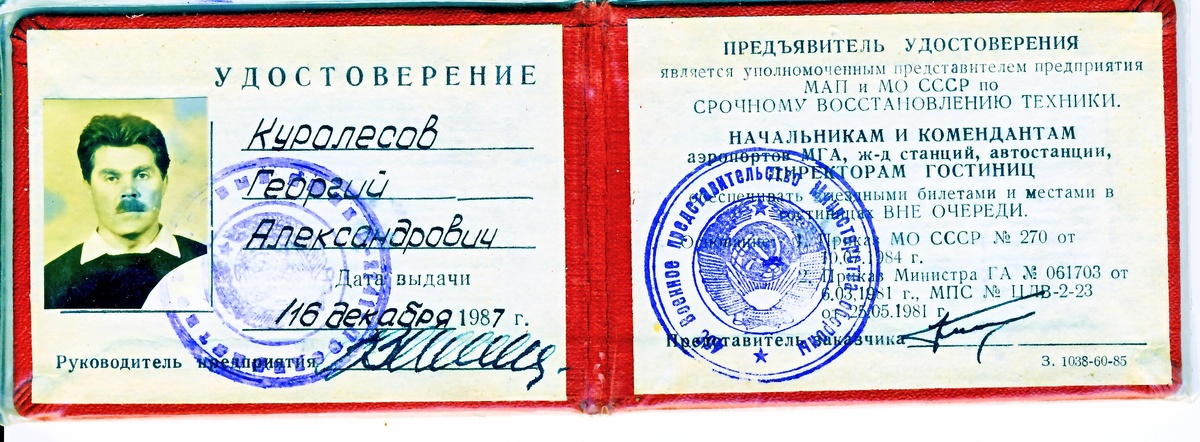 УДОСТОВЕРЕНИЕ
Куролесов
Георгий
Александрович
Дата выдачи
"16 декабря 1987 г.
Руководитель предприятия
ПРЕДЪЯВИТЕЛЬ УДОСТОВЕРЕНИЯ
является уполномоченным представителем предприятия
МАП и МО СССР по
СРОЧНОМУ ВОССТАНОВЛЕНИЮ ТЕХНИКИ.
НАЧАЛЬНИКАМ И КОМЕНДАНТАМ
аэропортов МГА, ж-д станций, автостанции,
ДИРЕКТОРАМ ГОСТИНИЦ
обеспечивать проездными билетами и местами в
гостиницах ВНЕ ОЧЕРЕДИ.
1. Приказ МО СССР № 270 от
1984 г.
2. Приказ Министра ГА № 061703 от
6.03.1981 г., МПС № ЦЛВ-2-23
от 25.05.1981 г.
Представитель заказчика
З. 1038-60-85
Военное представительство Министерства обороны